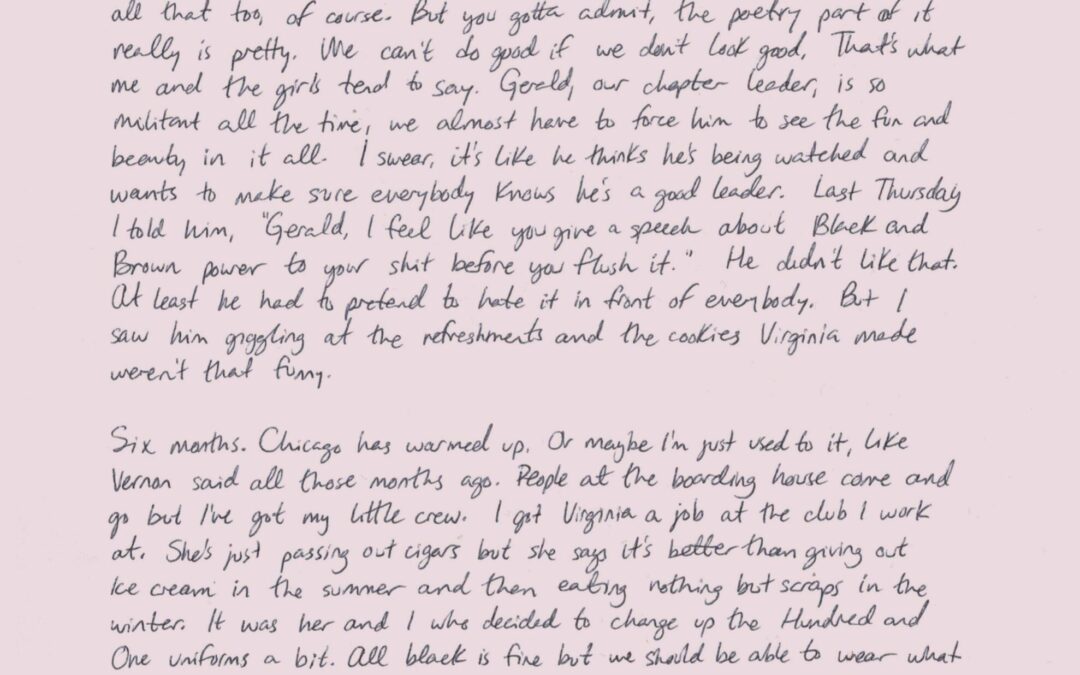 all that too, of course. But you gotta admit, the poetry part of it
really is pretty. We can't do good if we don't look good, That's what
me and the girls tend to say. Gerald, our chapter leader, is so
militant all the time, we almost have to force him to see the fun and
beauty in it all. I swear, it's like he thinks he's being watched and
wants to make sure everybody knows he's a good leader. Last Thursday
I told him, "Gerald, I feel like you give a speech about Black and
Brown power to your shit before you flush it." He didn't like that.
At least he had to pretend to hate it in front of everybody. But I
saw him giggling at the refreshments and the cookies Virginia made
weren't that funny.
Six months. Chicago has warmed up. Or maybe I'm just used to it, like
Vernon said all those months ago. People at the boarding house come and
go but I've got my little crew. I got Virginia a job at the club I work
at. She's just passing out cigars but she says it's better than giving out
Ice cream in the summer and then eating nothing but scraps in the
winter. It was her and I who decided to change up the Hundred and
One uniforms a bit. All black is fine but we should be able to wear what